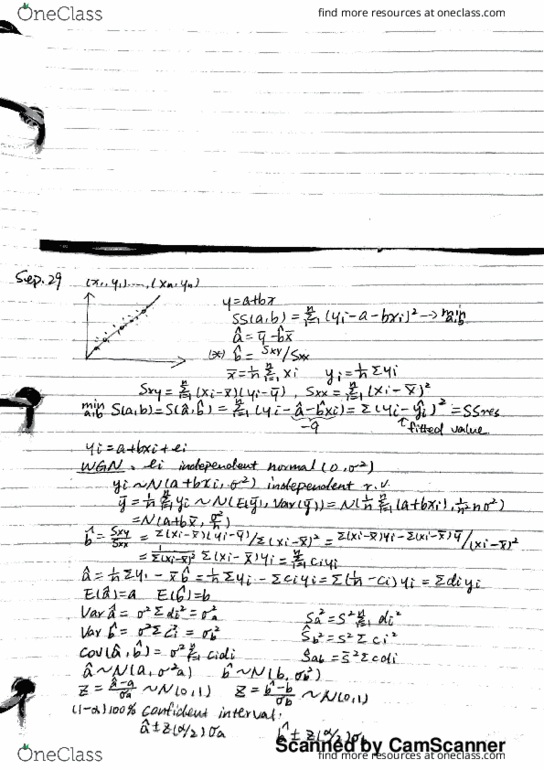 OneClass
find more resources at oneclass.com
Sep. 29
(x₁, y₁) ...., (xn, yn)
y=a+bx
SS(a,b) = Σⁿᵢ₌₁ (yi-a-bxi)² → min a,b
â = ȳ - b̂x̄
(*) b̂ = Sxy/Sxx
x̄ = 1/n Σⁿᵢ₌₁ xi ȳi = 1/n Σyi
Sxy = Σⁿᵢ₌₁ (xi-x̄)(yi-ȳ), Sxx = Σⁿᵢ₌₁ (xi-x̄)²
min a,b S(a,b) = S(â,b̂) = Σⁿᵢ₌₁ (yi-â-b̂xi) = Σ(yi-ŷi)² = SSres
-ŷ ↑ fitted value
yi = a+bxi+ei
WGN. ei independent normal (0, σ²)
yi ~ N(a+bxi, σ²) independent r.v.
ȳ = 1/n Σⁿᵢ₌₁ yi ~ N(E(ȳ), Var(ȳ)) = N(1/n Σⁿᵢ₌₁ (a+bxi), 1/n² nσ²)
= N(a+bx̄, σ²/n)
b̂ = Sxy/Sxx = Σ(xi-x̄)(yi-ȳ)/Σ(xi-x̄)² = Σ(xi-x̄)yi - Σ(xi-x̄)ȳ/(xi-x̄)²
= 1/Σ(xi-x̄)² Σ(xi-x̄)yi = Σⁿᵢ₌₁ ciyi
â = 1/n Σyi - x̄b̂ = 1/n Σyi - Σciyi = Σ(1/n - ci)yi = Σdiyi
E(â)=a E(b̂)=b
Var â = σ²Σdi² = σ²a Sâ² = S²Σⁿᵢ₌₁ di²
Var b̂ = σ²Σci² = σb² Ŝb² = S²Σci²
Cov(â,b̂) = σ²Σⁿᵢ₌₁ cidi Sab = S²Σcidi
â ~ N(a, σ²a) b̂ ~ N(b, σb²)
Z = â-a/σa ~ N(0,1) Z = b̂-b/σb ~ N(0,1)
(1-α)100% confident interval:
â ± Z(α/2)σa b̂ ± Z(α/2)σb
Scanned by CamScanner
OneClass
find more resources at oneclass.com